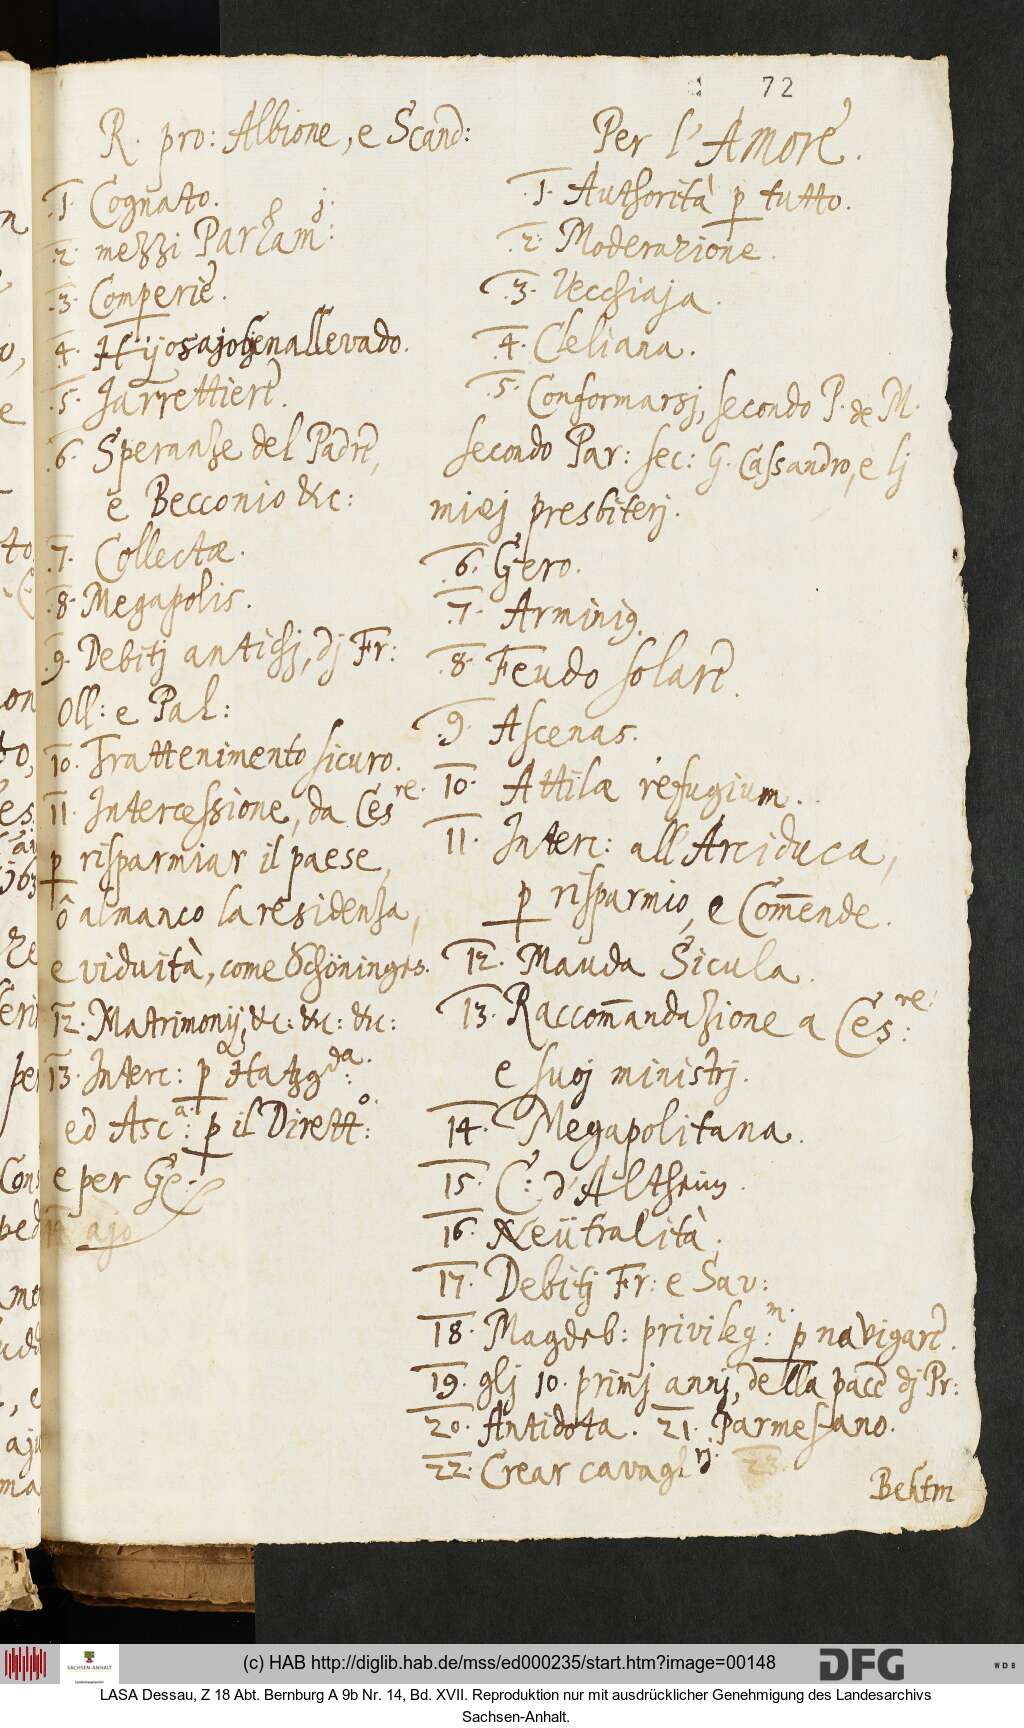 72
R. pro: Albione, e Scand:
.1. Cognato.
.2. mezzi Parlam:
.3. Comperiè.
.4. Hijosajohenallevado.
.5. Jarrettierè.
.6. Speranze del Padrè,
e Becconio &c:
.7. Collectæ.
.8. Megapolis.
.9. Debitj antichj, dj Fr:
Oll: e Pal:
10. Trattenimento sicuro.
11. Intercessione, da Ces.re
p risparmiar il paese,
ô almanco la residenza,
e viduità, come Schöninges.
12. Matrimonij, &c: &c: &c:
13. Interc: p Hatzg:da.
ed Asc:a p il Dirett:o
e per Ge:
14. ajo
Per l'Amorè.
.1. Authorità p tutto.
.2. Moderazione.
.3. Vecchiaja.
.4. Cleliana.
.5. Conformarsj, secondo P. de M.
secondo Par: sec: G. Cassandro, e lj
miej presbiterj.
.6. Gero.
.7. Arminig.
.8. Feudo solarè.
.9. Ascenas.
10. Attilæ refugium.
11. Interc: all'Arciduca,
p risparmio, e Com̄ende.
12. Mauda Sicula.
13. Raccom̄andazione a Ces:re
e suoj ministrj.
14. Megapolitana.
15. C: d'Altheim.
16. Neütralità.
17. Debitj Fr: e Sav:
18. Magdeb: privileg:m. p navigarè.
19. glj 10. primj annj, della pacè dj Pr:
20. Antidota. 21. Parmesano.
22. Crear cavagl.rj. 23.
Behtm
(c) HAB http://diglib.hab.de/mss/ed000235/start.htm?image=00148
SACHSEN-ANHALT
DFG
WDB
LASA Dessau, Z 18 Abt. Bernburg A 9b Nr. 14, Bd. XVII. Reproduktion nur mit ausdrücklicher Genehmigung des Landesarchivs
Sachsen-Anhalt.